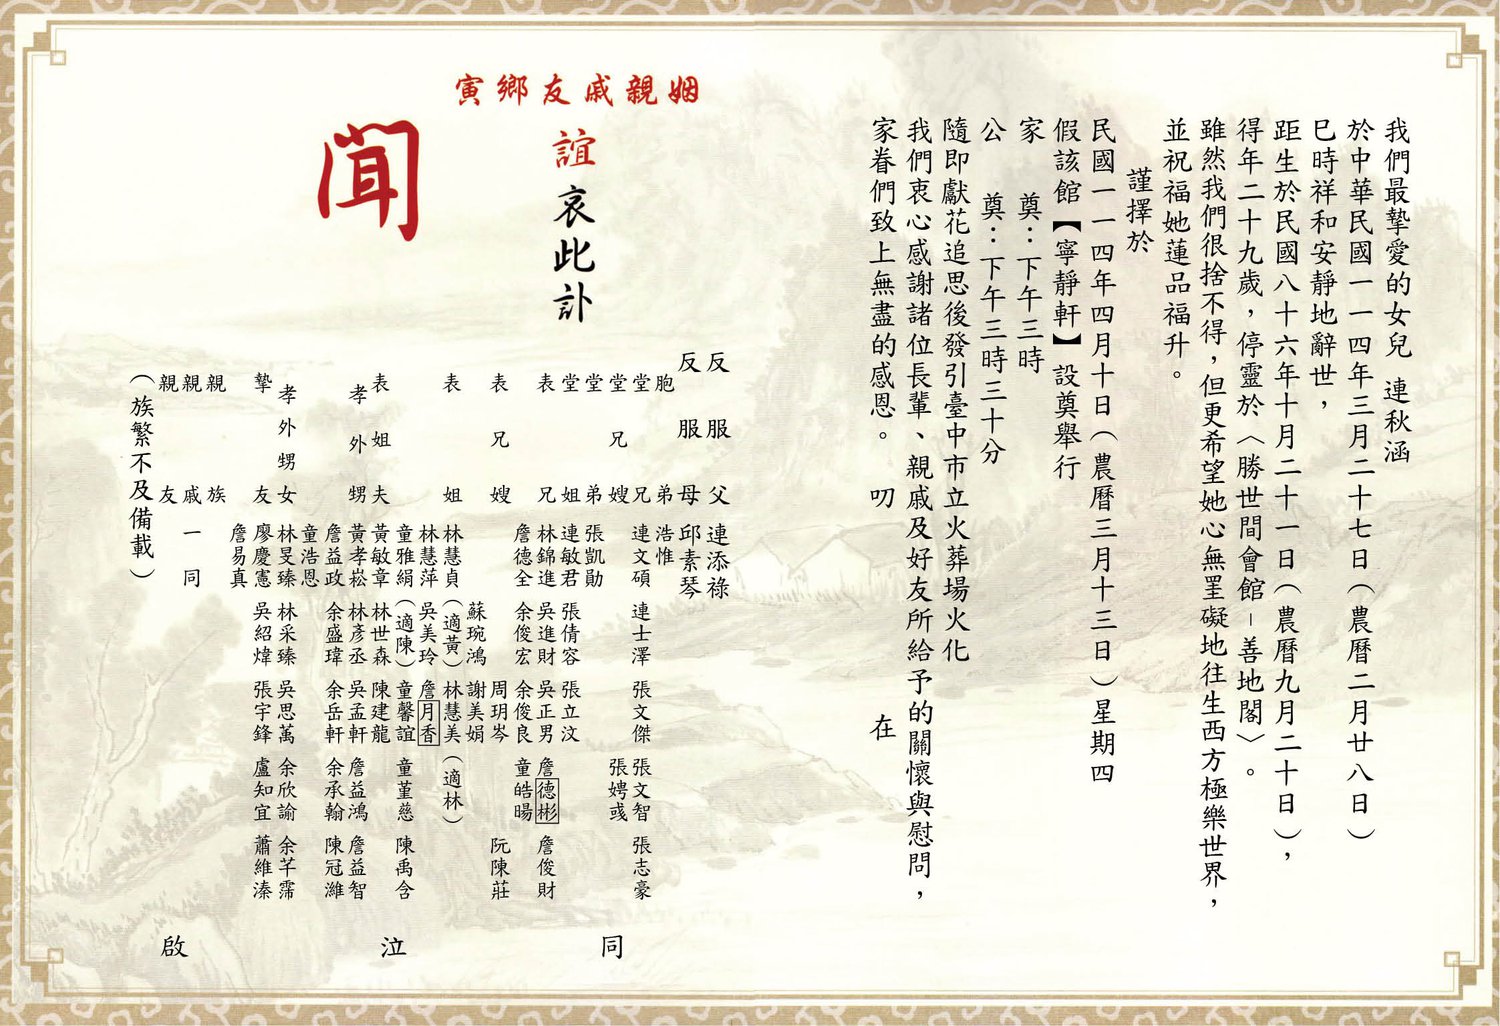 我們最摯愛的女兒 連秋涵
於中華民國一一四年三月二十七日（農曆二月廿八日）
巳時祥和安靜地辭世，
距生於民國八十六年十月二十一日（農曆九月二十日），
得年二十九歲，停靈於〈勝世間會館－善地閣〉。
雖然我們很捨不得，但更希望她心無罣礙地往生西方極樂世界，
並祝福她蓮品福升。
謹擇於
民國一一四年四月十日（農曆三月十三日）星期四
假該館【寧靜軒】設奠舉行
家 奠：下午三時
公 奠：下午三時三十分
隨即獻花追思後發引臺中市立火葬場火化
我們衷心感謝諸位長輩、親戚及好友所給予的關懷與慰問，
家眷們致上無盡的感恩。 叨 在
寅鄉友戚親姻
誼哀此訃
聞
反服父 連添祿
反服母 邱素琴
胞弟 浩惟
堂兄 連文碩 連士澤 張文傑 張文智 張志豪
堂兄嫂 張娉彧
堂弟 張凱勛
堂姐 連敏君 張倩容 張立汶
表兄 林錦進 吳進財 吳正男 詹德彬 詹俊財
詹德全 余俊宏 余俊良 童皓暘
表兄嫂 周玥岑 阮陳莊
蘇琬鴻 謝美娟
表姐 林慧貞（適黃） 林慧美（適林）
林慧萍 吳美玲 詹月香
童雅絹（適陳） 童馨誼 童堇慈 陳禹含
表姐夫 黃敏章 林世森 陳建龍
孝外甥 黃孝崧 林彥丞 吳孟軒 詹益鴻 詹益智
詹益政 余盛瑋 余岳軒 余承翰 陳冠濰
童浩恩
孝外甥女 林旻臻 林采臻 吳思萬 余欣諭 余芊霈
摯友 廖慶憲 吳紹煒 張宇鋒 盧知宜 蕭維溱
詹易真
親族
親戚 一同
親友
（族繁不及備載）
同 泣 啟